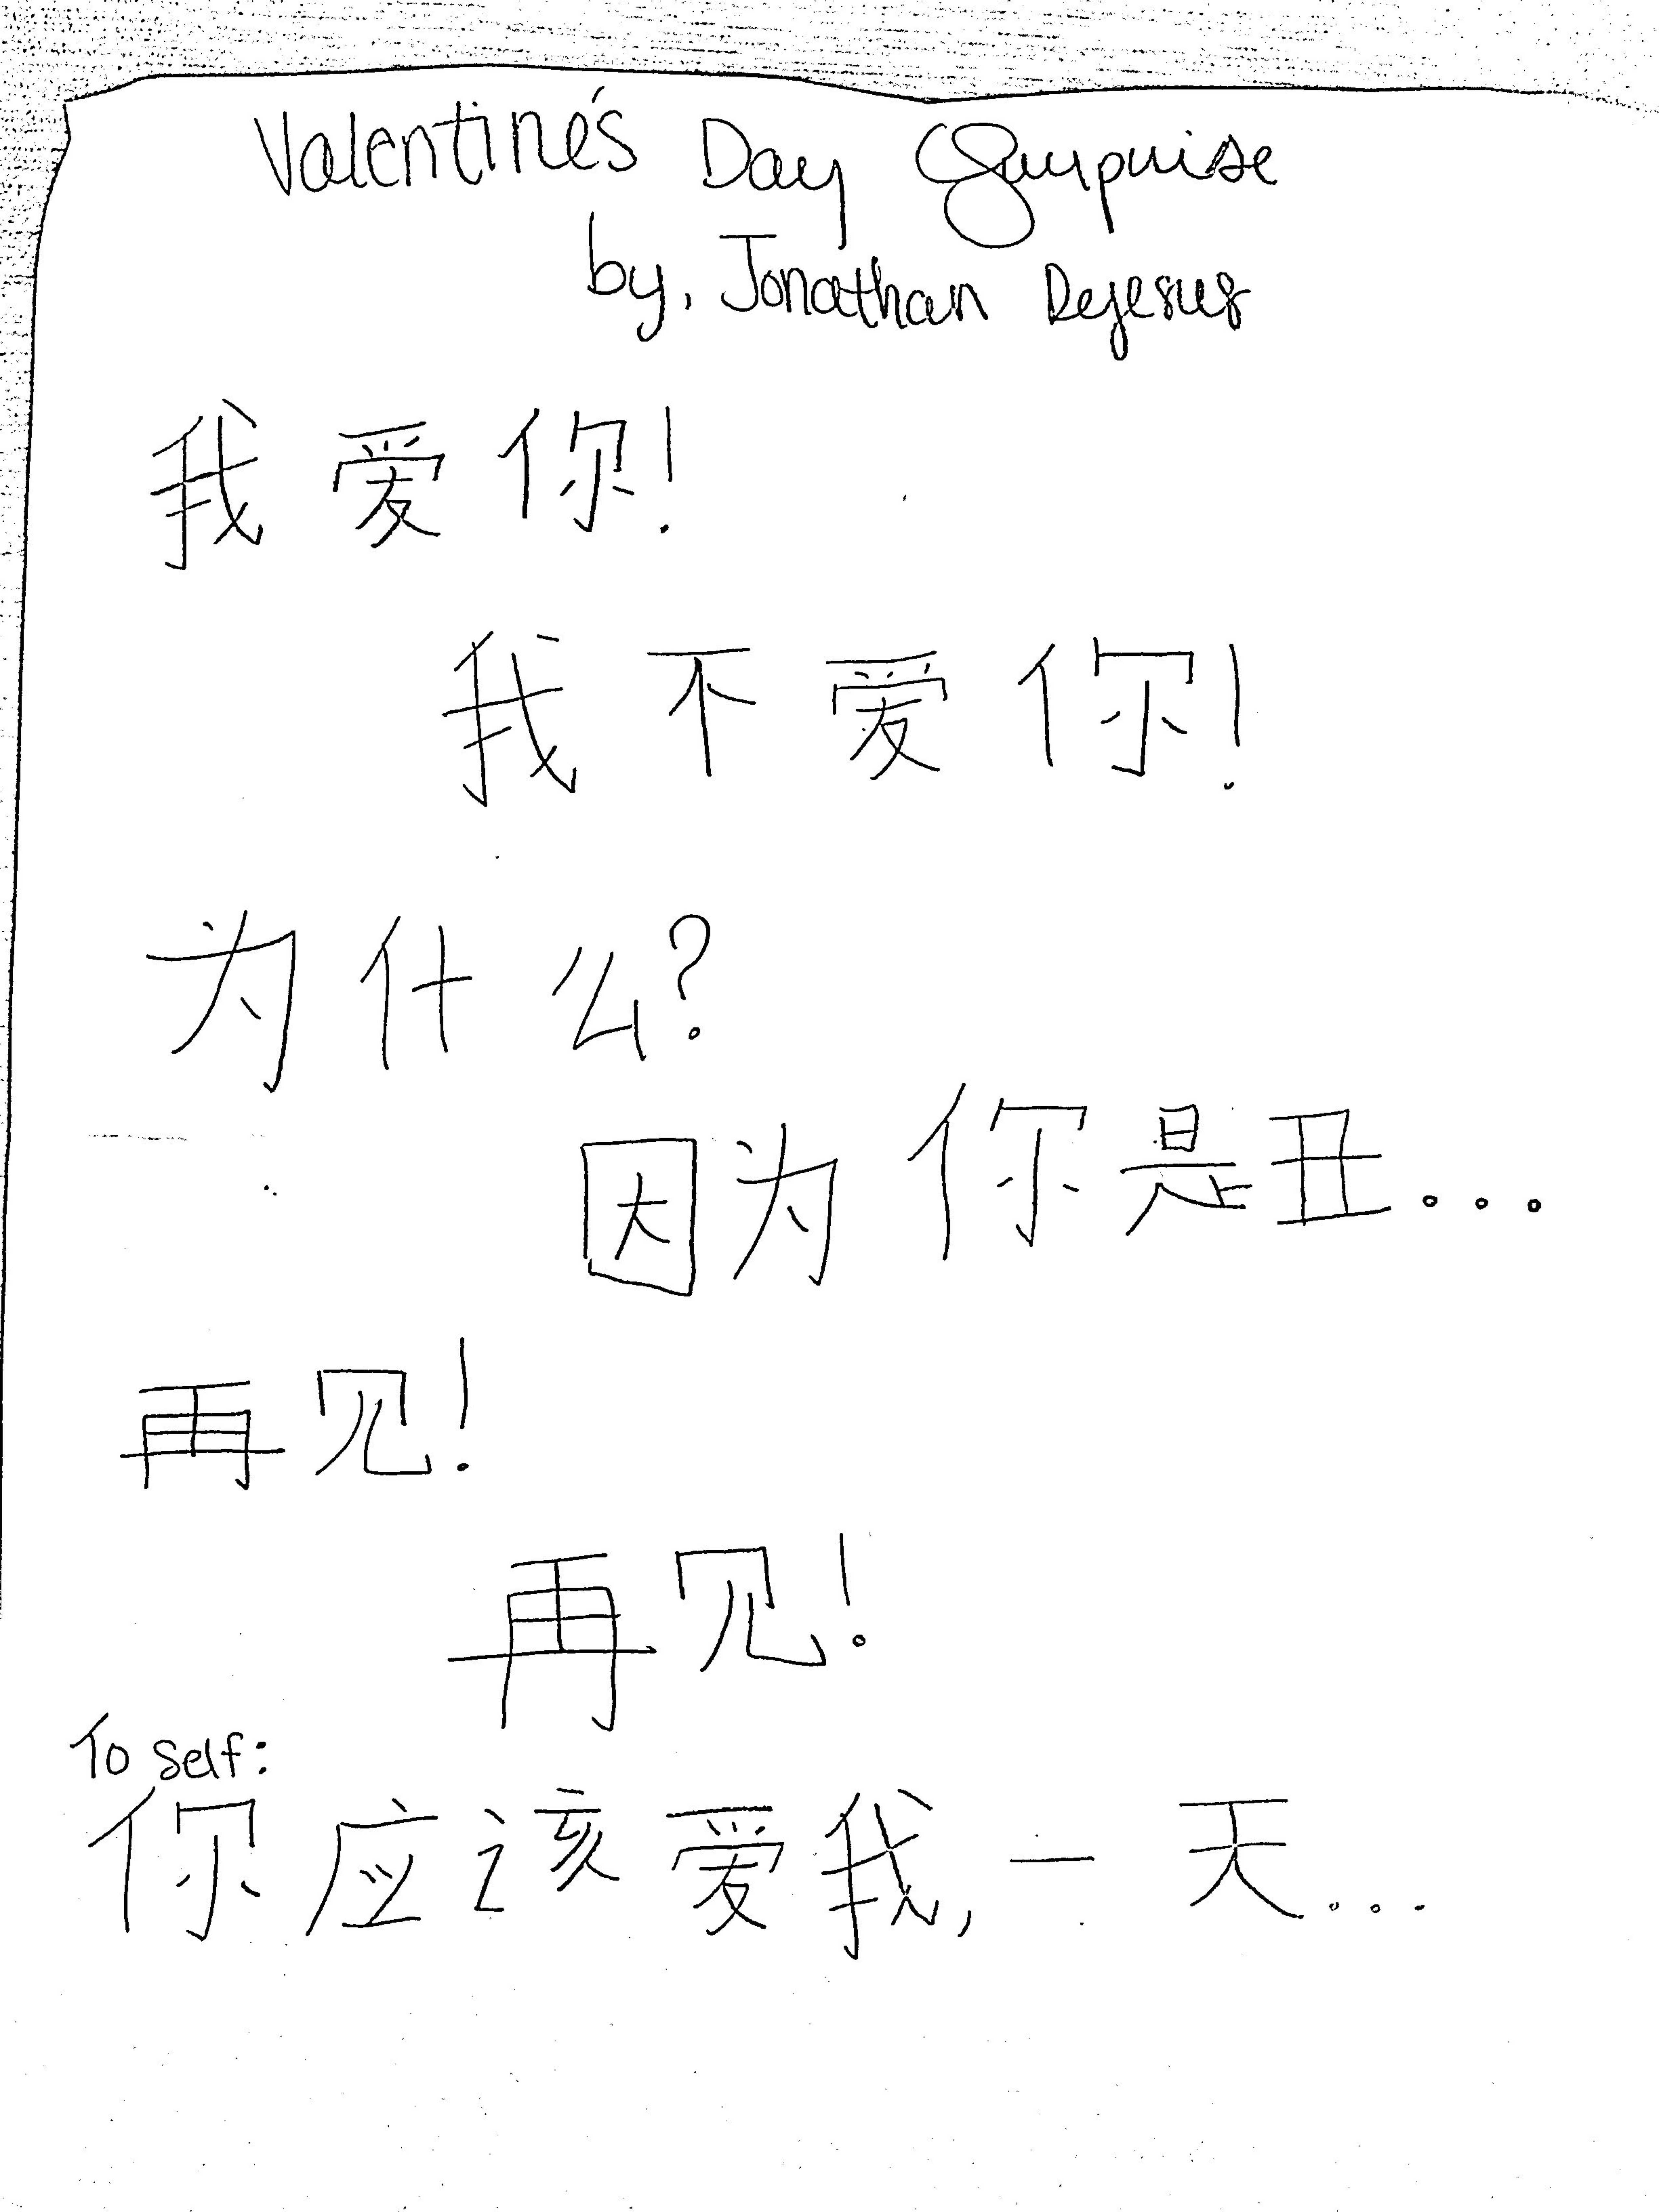 Valentine's Day Surprise
by, Jonathan Dejesus
我爱你!
我不爱你!
为什么?
因为你是丑...
再见!
再见!
To self:
你应该爱我,一天...